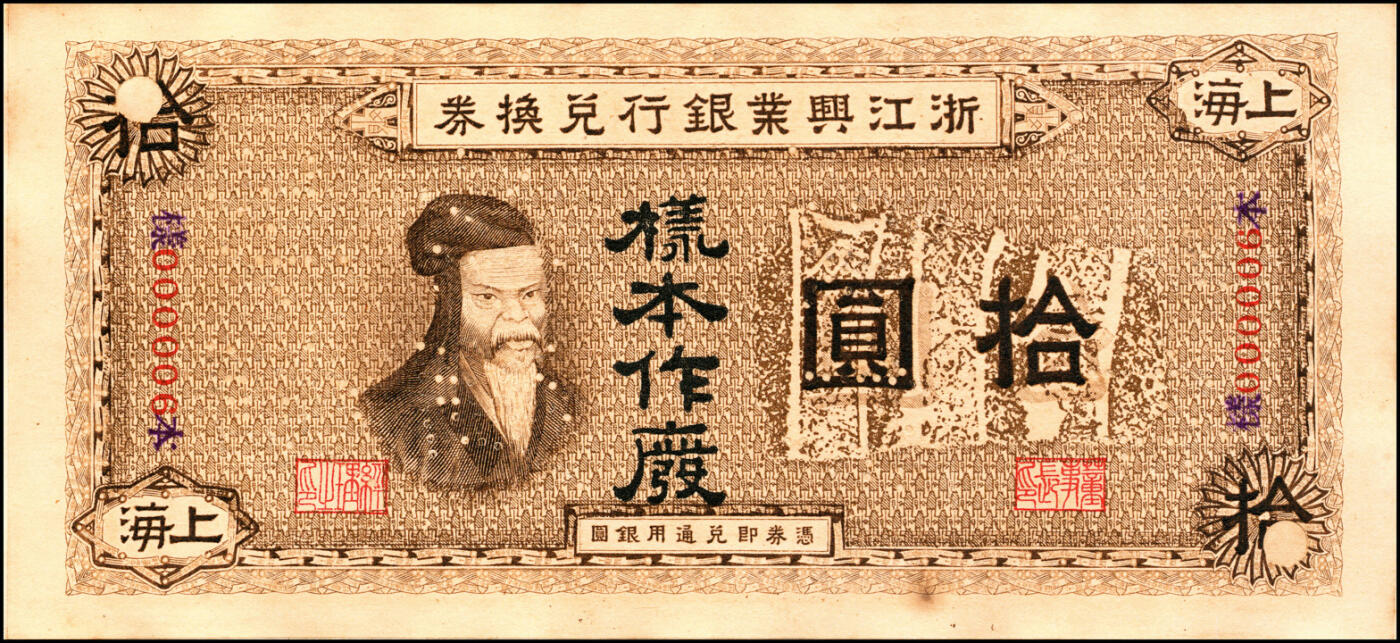 浙江興業銀行兌換券
上海
拾
拾圓
樣本作廢
樣0000006本
樣0000006本
憑券即兌通用銀圓
上海
拾